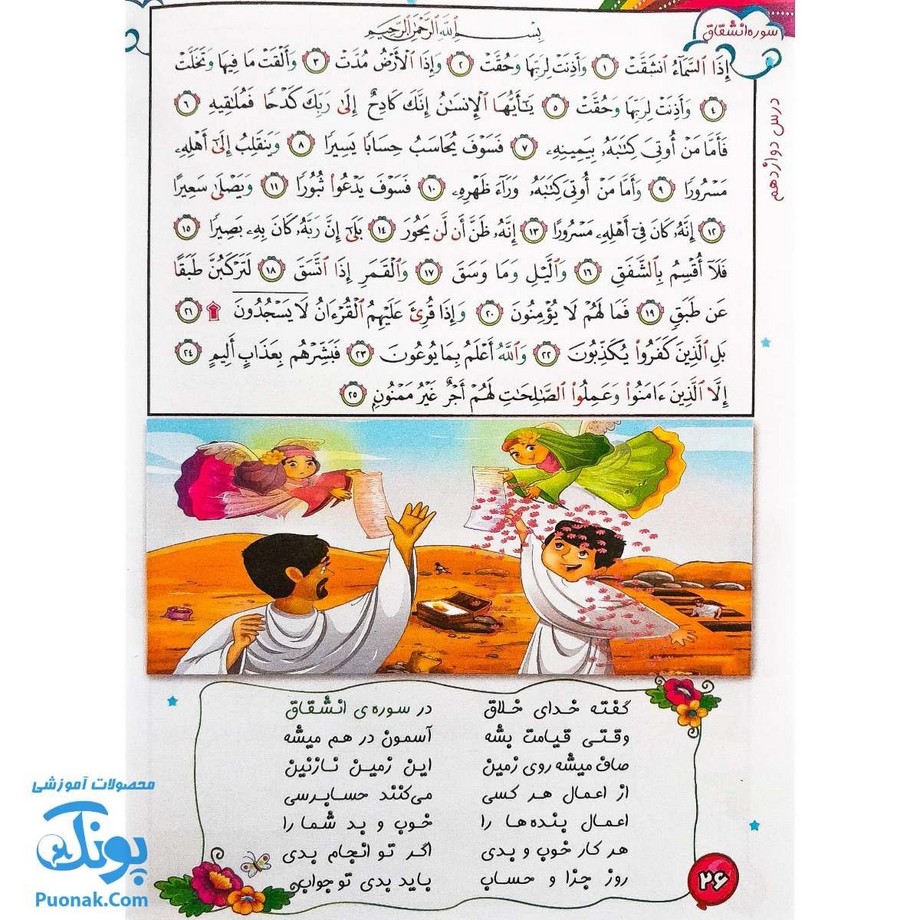 سوره انشقاق
بِسْمِ اللَّهِ الرَّحْمٰنِ الرَّحِيمِ
درس دوازدهم
إِذَا السَّمَآءُ انشَقَّتْ ١ وَأَذِنَتْ لِرَبِّهَا وَحُقَّتْ ٢ وَإِذَا الْأَرْضُ مُدَّتْ ٣ وَأَلْقَتْ مَا فِيهَا وَتَخَلَّتْ
٤ وَأَذِنَتْ لِرَبِّهَا وَحُقَّتْ ٥ يَٰٓأَيُّهَا الْإِنسَٰنُ إِنَّكَ كَادِحٌ إِلَىٰ رَبِّكَ كَدْحًا فَمُلَٰقِيهِ ٦
فَأَمَّا مَنْ أُوتِيَ كِتَٰبَهُۥ بِيَمِينِهِۦ ٧ فَسَوْفَ يُحَاسَبُ حِسَابًا يَسِيرًا ٨ وَيَنقَلِبُ إِلَىٰٓ أَهْلِهِۦ
مَسْرُورًا ٩ وَأَمَّا مَنْ أُوتِيَ كِتَٰبَهُۥ وَرَآءَ ظَهْرِهِۦ ١٠ فَسَوْفَ يَدْعُوا۟ ثُبُورًا ١١ وَيَصْلَىٰ سَعِيرًا
١٢ إِنَّهُۥ كَانَ فِىٓ أَهْلِهِۦ مَسْرُورًا ١٣ إِنَّهُۥ ظَنَّ أَن لَّن يَحُورَ ١٤ بَلَىٰٓ إِنَّ رَبَّهُۥ كَانَ بِهِۦ بَصِيرًا ١٥
فَلَآ أُقْسِمُ بِالشَّفَقِ ١٦ وَالَّيْلِ وَمَا وَسَقَ ١٧ وَالْقَمَرِ إِذَا اتَّسَقَ ١٨ لَتَرْكَبُنَّ طَبَقًا
عَن طَبَقٍ ١٩ فَمَا لَهُمْ لَا يُؤْمِنُونَ ٢٠ وَإِذَا قُرِئَ عَلَيْهِمُ الْقُرْءَانُ لَا يَسْجُدُونَ ۩ ٢١
بَلِ الَّذِينَ كَفَرُوا۟ يُكَذِّبُونَ ٢٢ وَاللَّهُ أَعْلَمُ بِمَا يُوعُونَ ٢٣ فَبَشِّرْهُم بِعَذَابٍ أَلِيمٍ ٢٤
إِلَّا الَّذِينَ ءَامَنُوا۟ وَعَمِلُوا۟ الصَّٰلِحَٰتِ لَهُمْ أَجْرٌ غَيْرُ مَمْنُونٍ ٢٥
گفته خدای خلاق در سوره‌ی انشقاق
وقتی قیامت بشه آسمون در هم میشه
صاف میشه روی زمین این زمین نازنین
از اعمال هر کسی می‌کنند حسابرسی
اعمال بنده‌ها را خوب و بد شما را
هر کار خوب و بدی اگر تو انجام بدی
روز جزا و حساب باید بدی تو جواب
۲۶
محصولات آموزشی
پونک
Puonak.Com